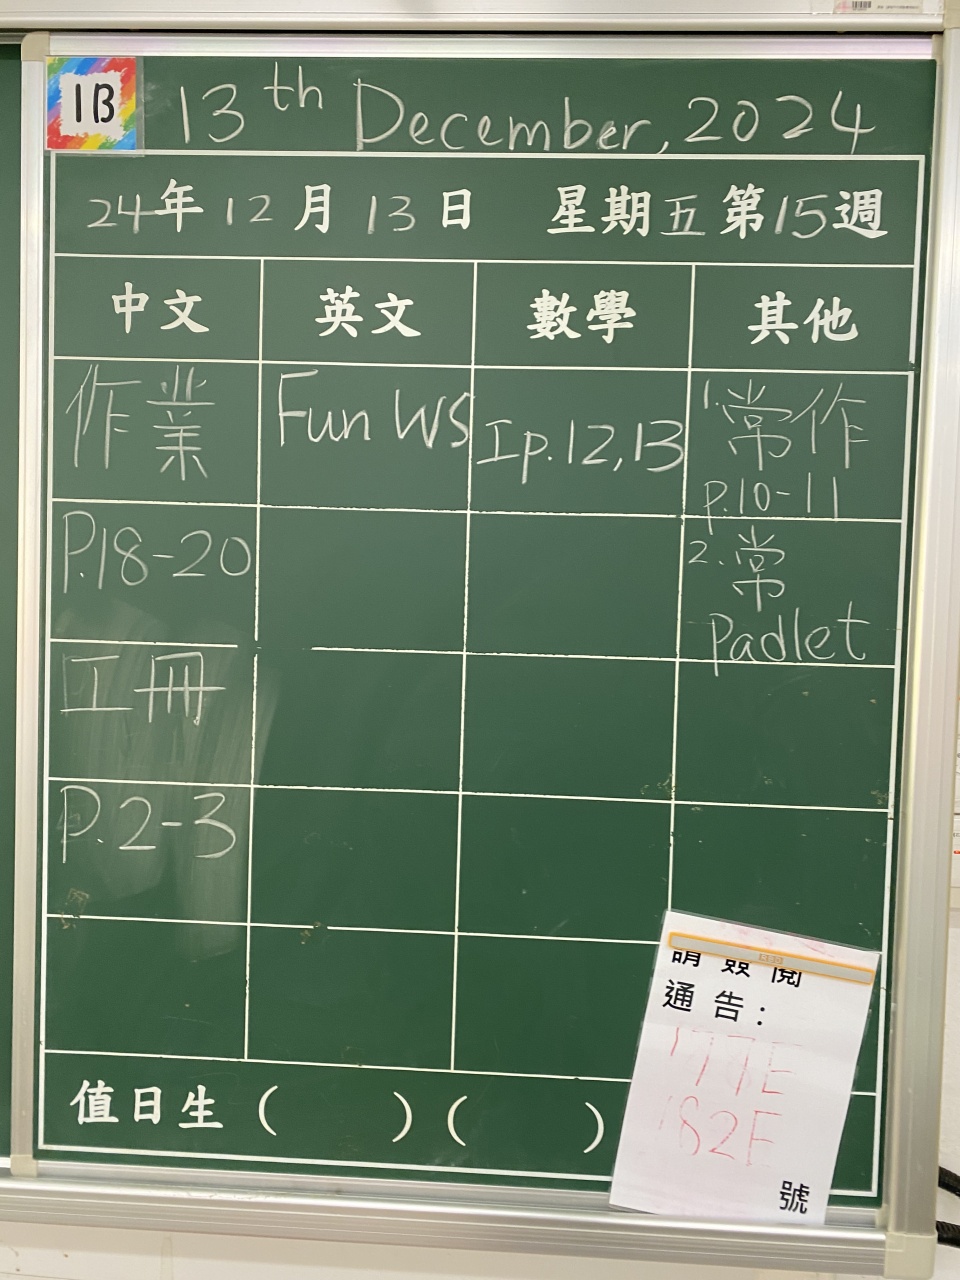 1B
13th December, 2024
24年12月13日 星期五第15週
中文 英文 數學 其他
作業 Fun WS Ip.12,13 1.常作
p.10-11
P.18-20 2.常
Padlet
工冊
P.2-3
請簽閱
通告：
177E
182E
號
值日生（ ）（ ）